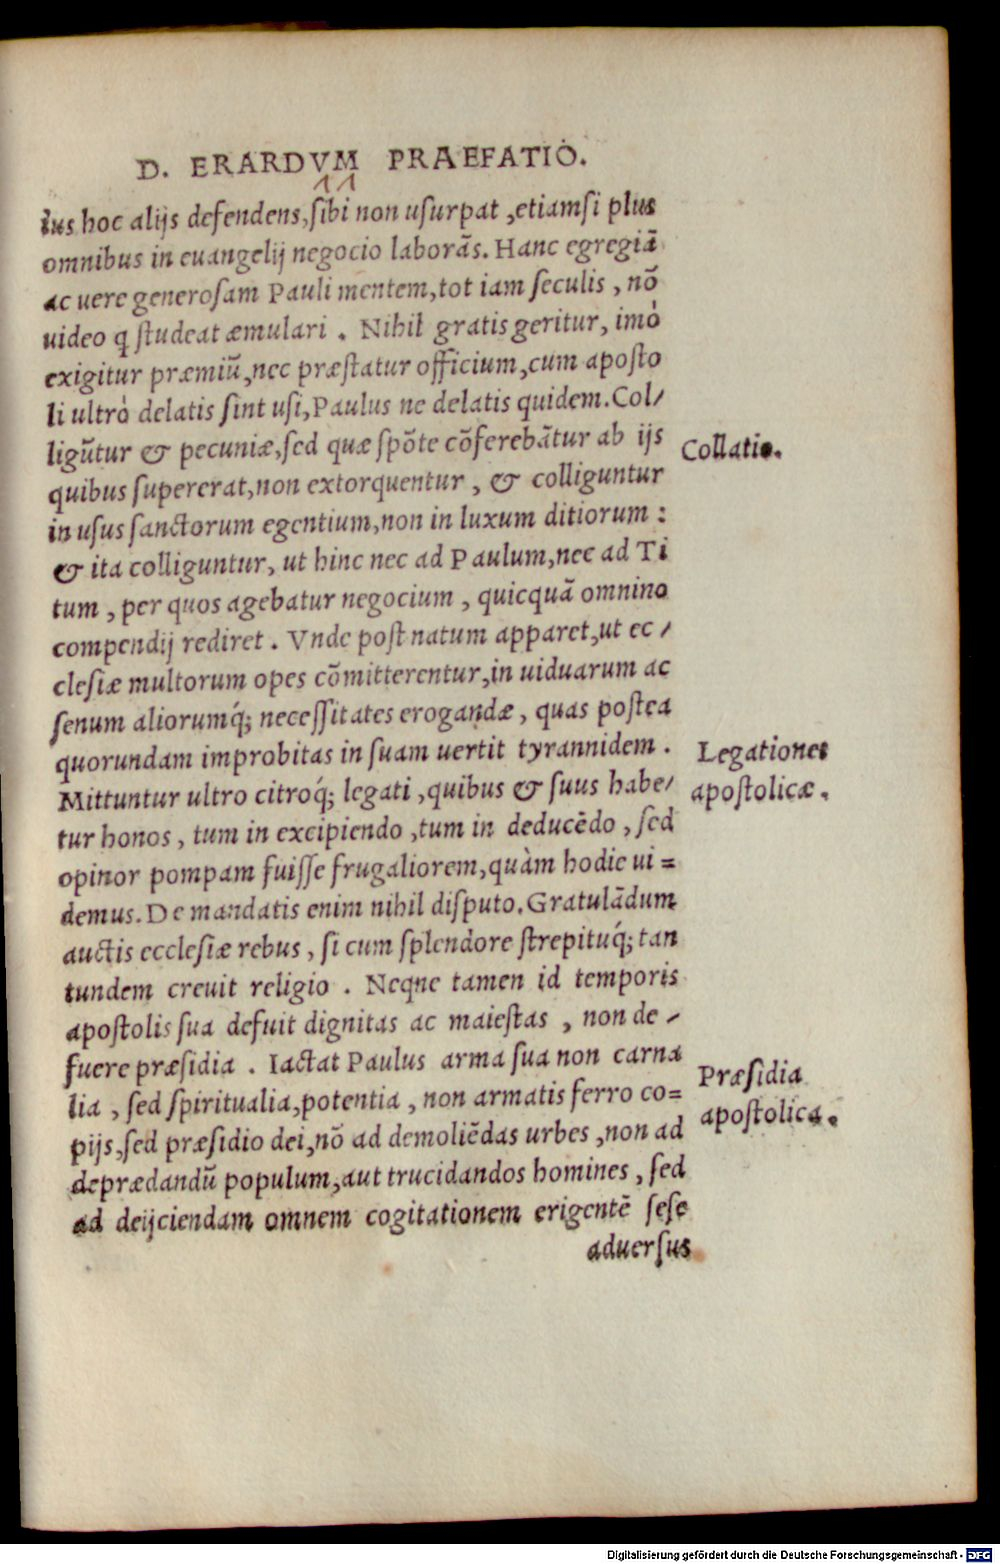 D. ERARDVM PRAEFATIO.
11
lus hoc alijs defendens, sibi non usurpat, etiamsi plus
omnibus in euangelij negocio laborãs. Hanc egregiã
ac uere generosam Pauli mentem, tot iam seculis, nõ
uideo q studeat æmulari. Nihil gratis geritur, imò
exigitur præmiũ, nec præstatur officium, cum aposto
li ultrò delatis sint usi, Paulus ne delatis quidem. Col/
ligũtur & pecuniæ, sed quæ spõte cõferebãtur ab ijs
Collatio.
quibus supererat, non extorquentur, & colliguntur
in usus sanctorum egentium, non in luxum ditiorum:
& ita colliguntur, ut hinc nec ad Paulum, nec ad Ti
tum, per quos agebatur negocium, quicquã omnino
compendij rediret. Vnde post natum apparet, ut ec/
clesiæ multorum opes cõmitterentur, in uiduarum ac
senum aliorumq́; necessitates erogandæ, quas postea
quorundam improbitas in suam uertit tyrannidem.
Legationes
Mittuntur ultro citroq́; legati, quibus & suus habe/
apostolicæ.
tur honos, tum in excipiendo, tum in deducẽdo, sed
opinor pompam fuisse frugaliorem, quàm hodie ui=
demus. De mandatis enim nihil disputo. Gratulãdum
auctis ecclesiæ rebus, si cum splendore strepituq́; tan
tundem creuit religio. Neqne tamen id temporis
apostolis sua defuit dignitas ac maiestas, non de/
fuere præsidia. Iactat Paulus arma sua non carna
Præsidia
lia, sed spiritualia, potentia, non armatis ferro co=
apostolica.
pijs, sed præsidio dei, nõ ad demoliẽdas urbes, non ad
deprædandũ populum, aut trucidandos homines, sed
ad deijciendam omnem cogitationem erigentẽ sese
aduersus
Digitalisierung gefördert durch die Deutsche Forschungsgemeinschaft - DFG